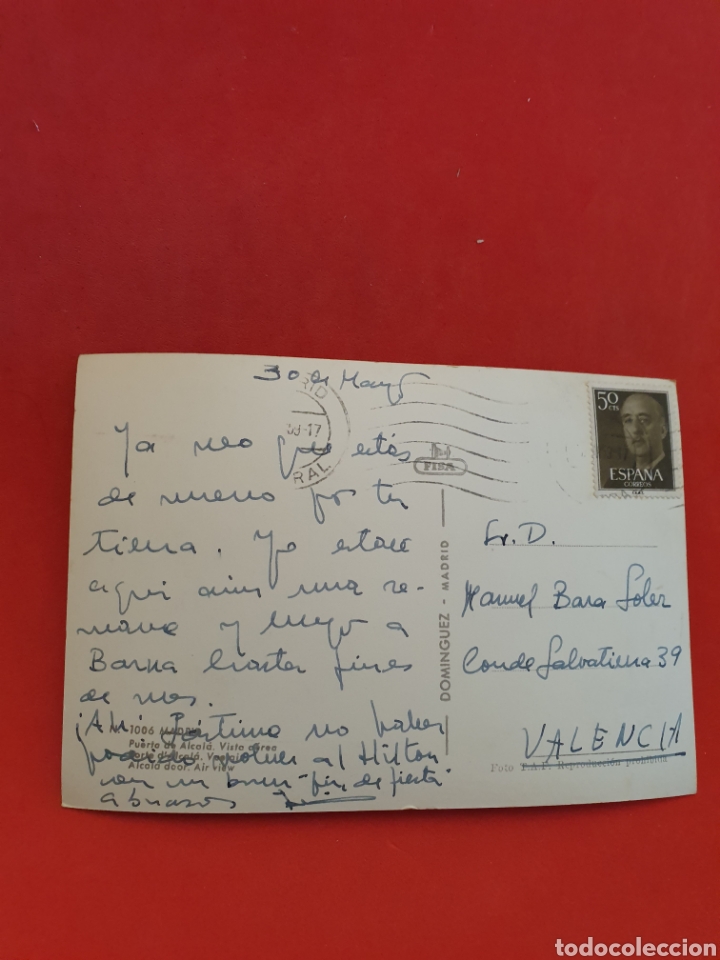 30 de Mayo
RID
30-17
RAL
FISA
50
CTS
ESPAÑA
CORREOS
Ya veo que estás
de nuevo por tu
tierra. Yo estaré
aquí aún una se-
mana y luego a
Barna hasta fines
de mes.
¡Ah! Lástima no haber
podido volver al Hilton
con un buen "fin de fiesta"
abrazos
1006 MADRID
Puerta de Alcalá. Vista aérea
Alcalá door. Air view
DOMINGUEZ - MADRID
Sr. D.
Manuel Bara Soler
Conde Salvatierra 39
VALENCIA
Foto T.A.F. Reproducción prohibida
todocoleccion